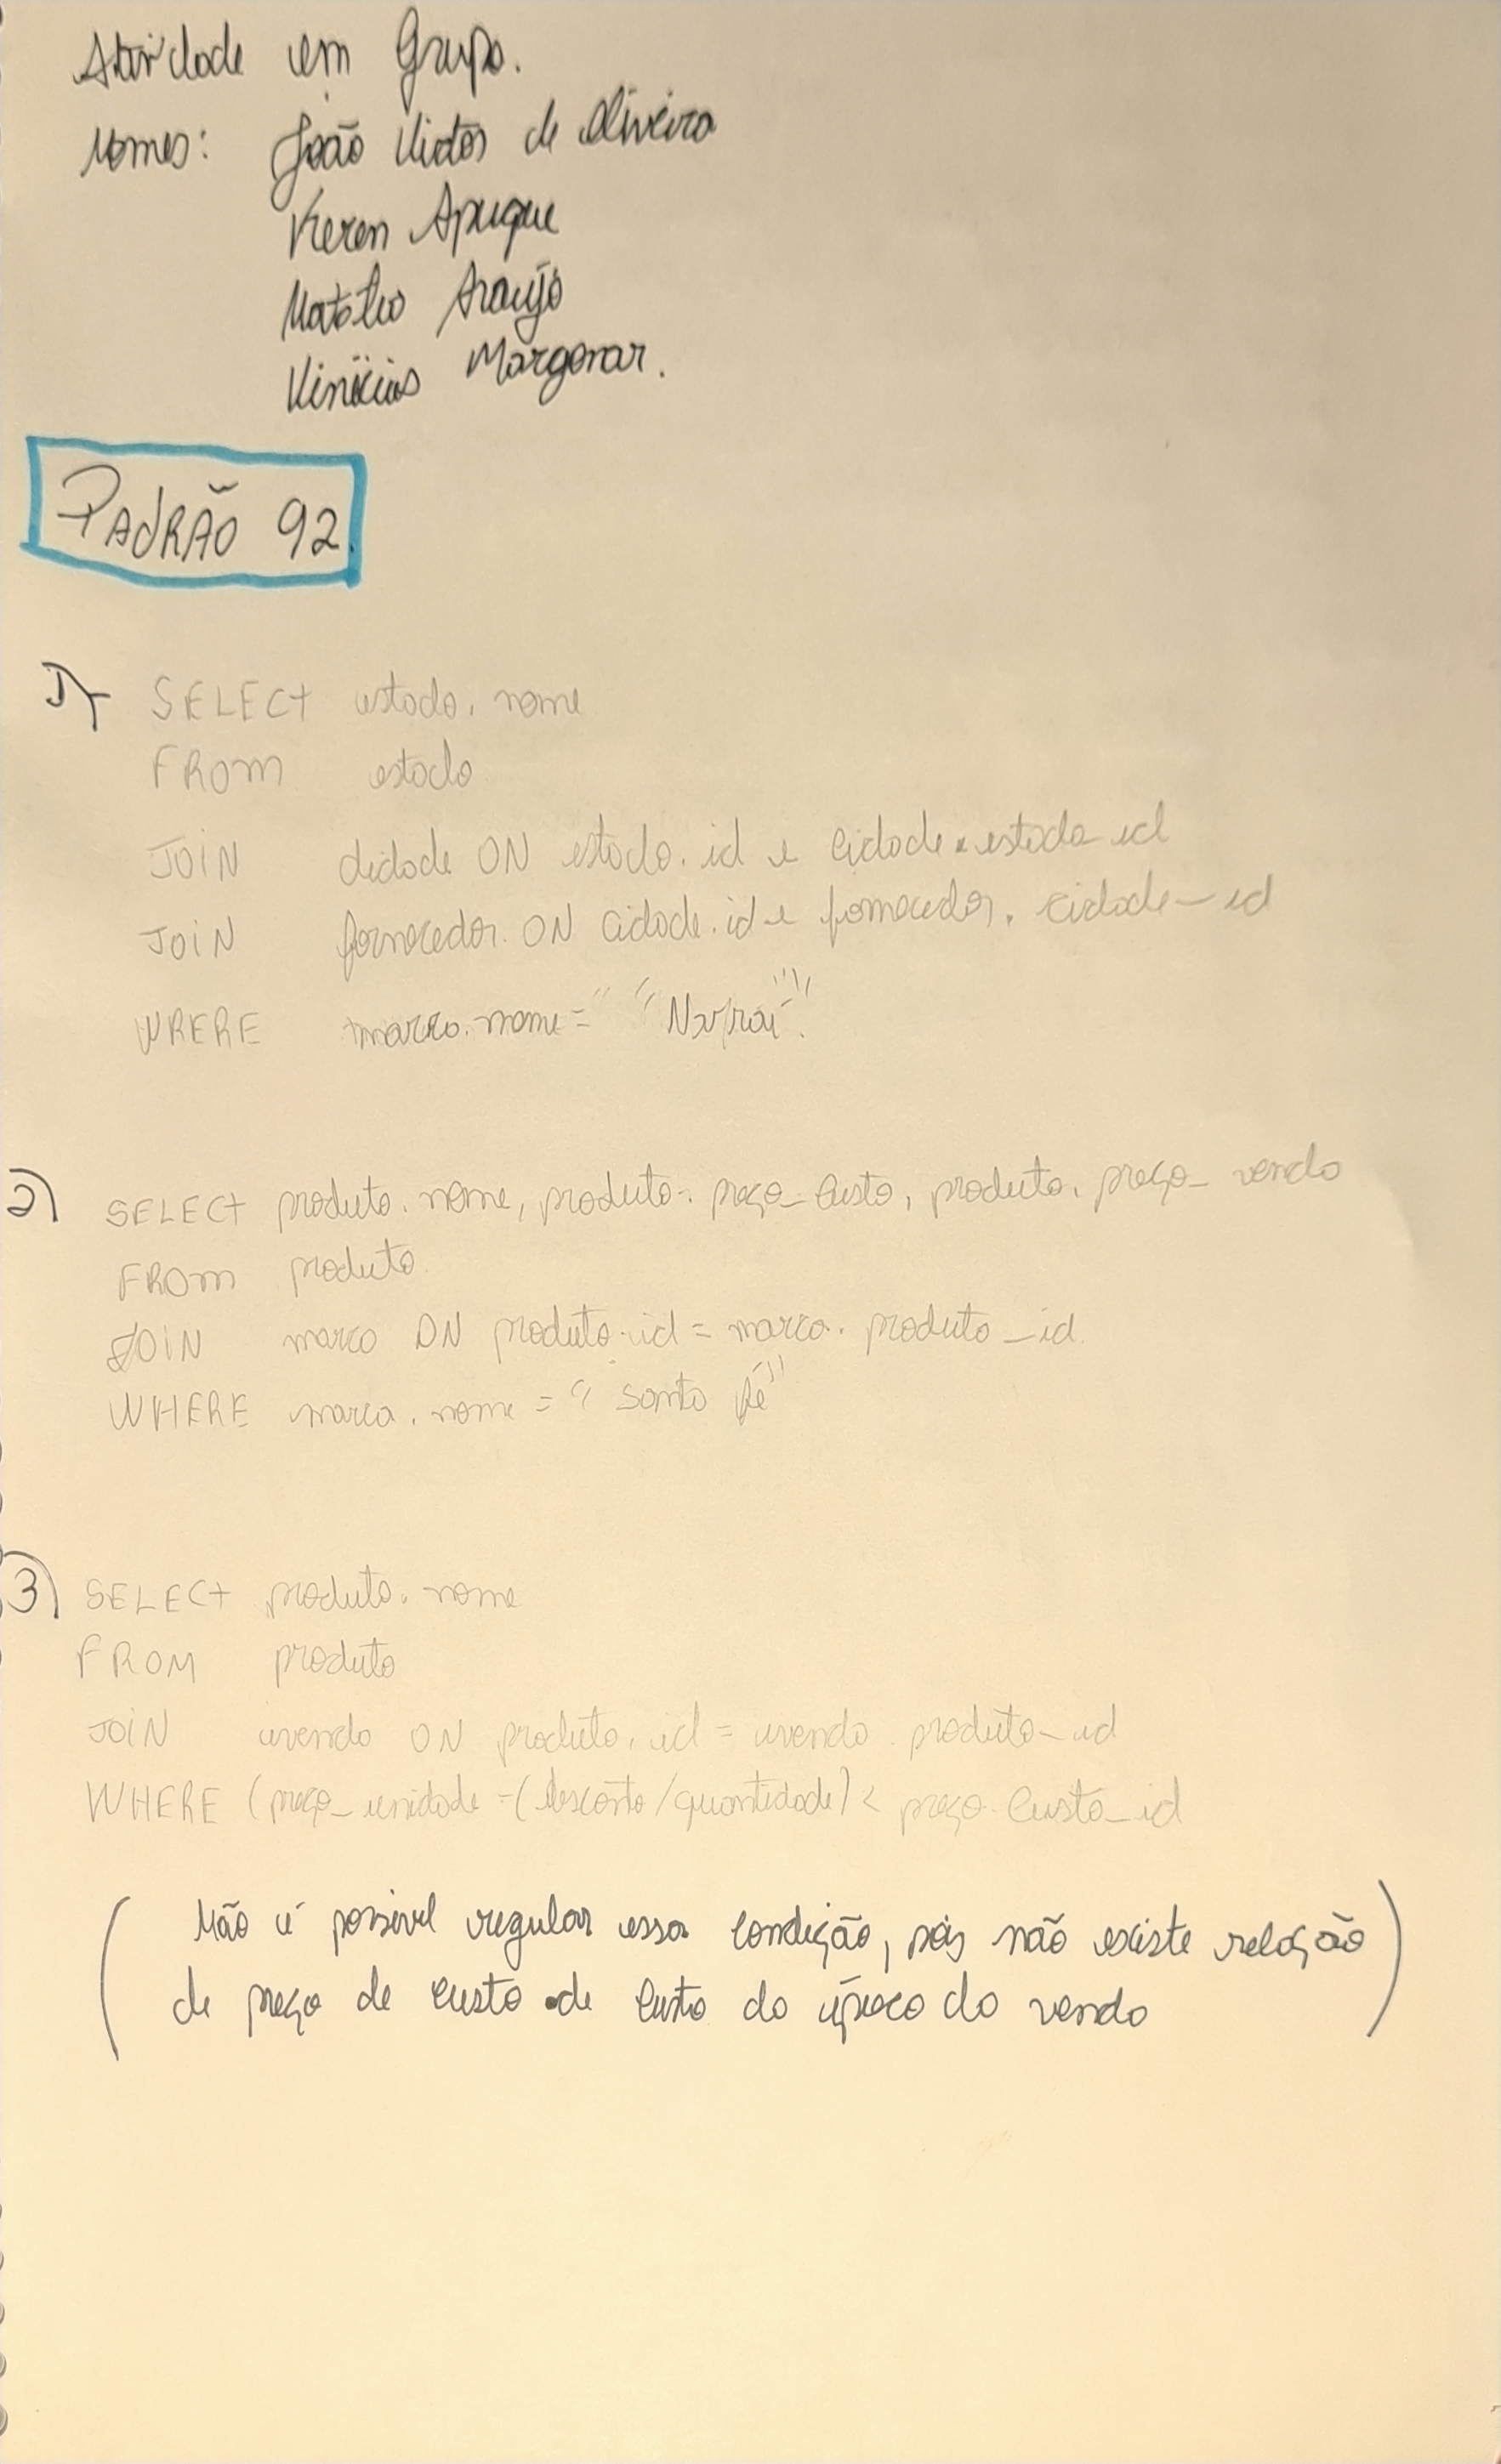 Atividade em Grupo.
Nomes: João Victor de Oliveira
Keren Apuque
Araújo
Vinícius
PADRÃO 92.
1) SELECT estado.nome
FROM estado
JOIN cidade ON estado.id e cidade.estado_id
JOIN fornecedor ON cidade.id e fornecedor.cidade_id
WRERE marca.nome = "
2) SELECT produto.nome, produto.preço_custo, produto.preço_venda
FROM produto
JOIN marca ON produto.id = marca.produto_id
WHERE marca.nome = "Santa Fé"
3) SELECT produto.nome
FROM produto
JOIN venda ON produto.id = venda.produto_id
WHERE (preço_unidade -(desconto/quantidade) < preço.custo_id
( Não é possível regular essa condição, pois não existe relação
de preço de custo de custo da época da venda )